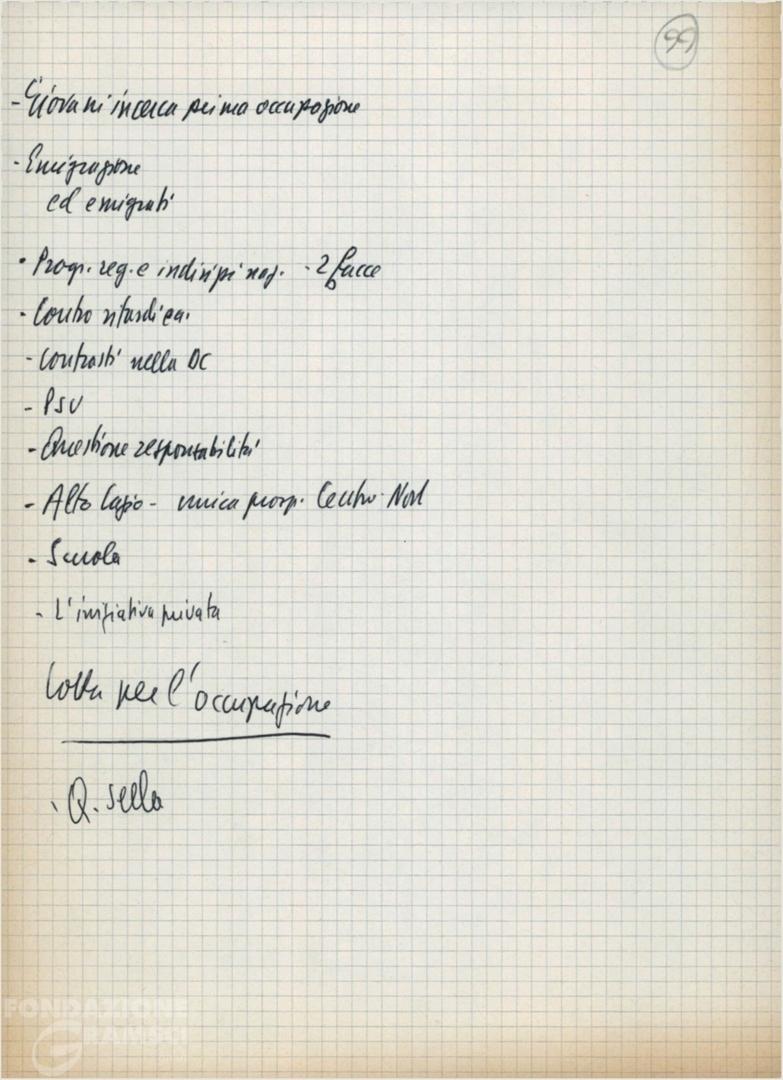 99
- Giovani in cerca prima occupazione
- Emigrazione
ed emigrati
• Progr. reg. e indirizzi naz. - 2 facce
- Contro
- Contrasti nella DC
- PSU
- Questione responsabilità
- Alto Lazio - unica prosp. Centro-Nord
- Scuola
- L'iniziativa privata
Lotta per l'occupazione
- Q. Sella
FONDAZIONE
GRAMSCI